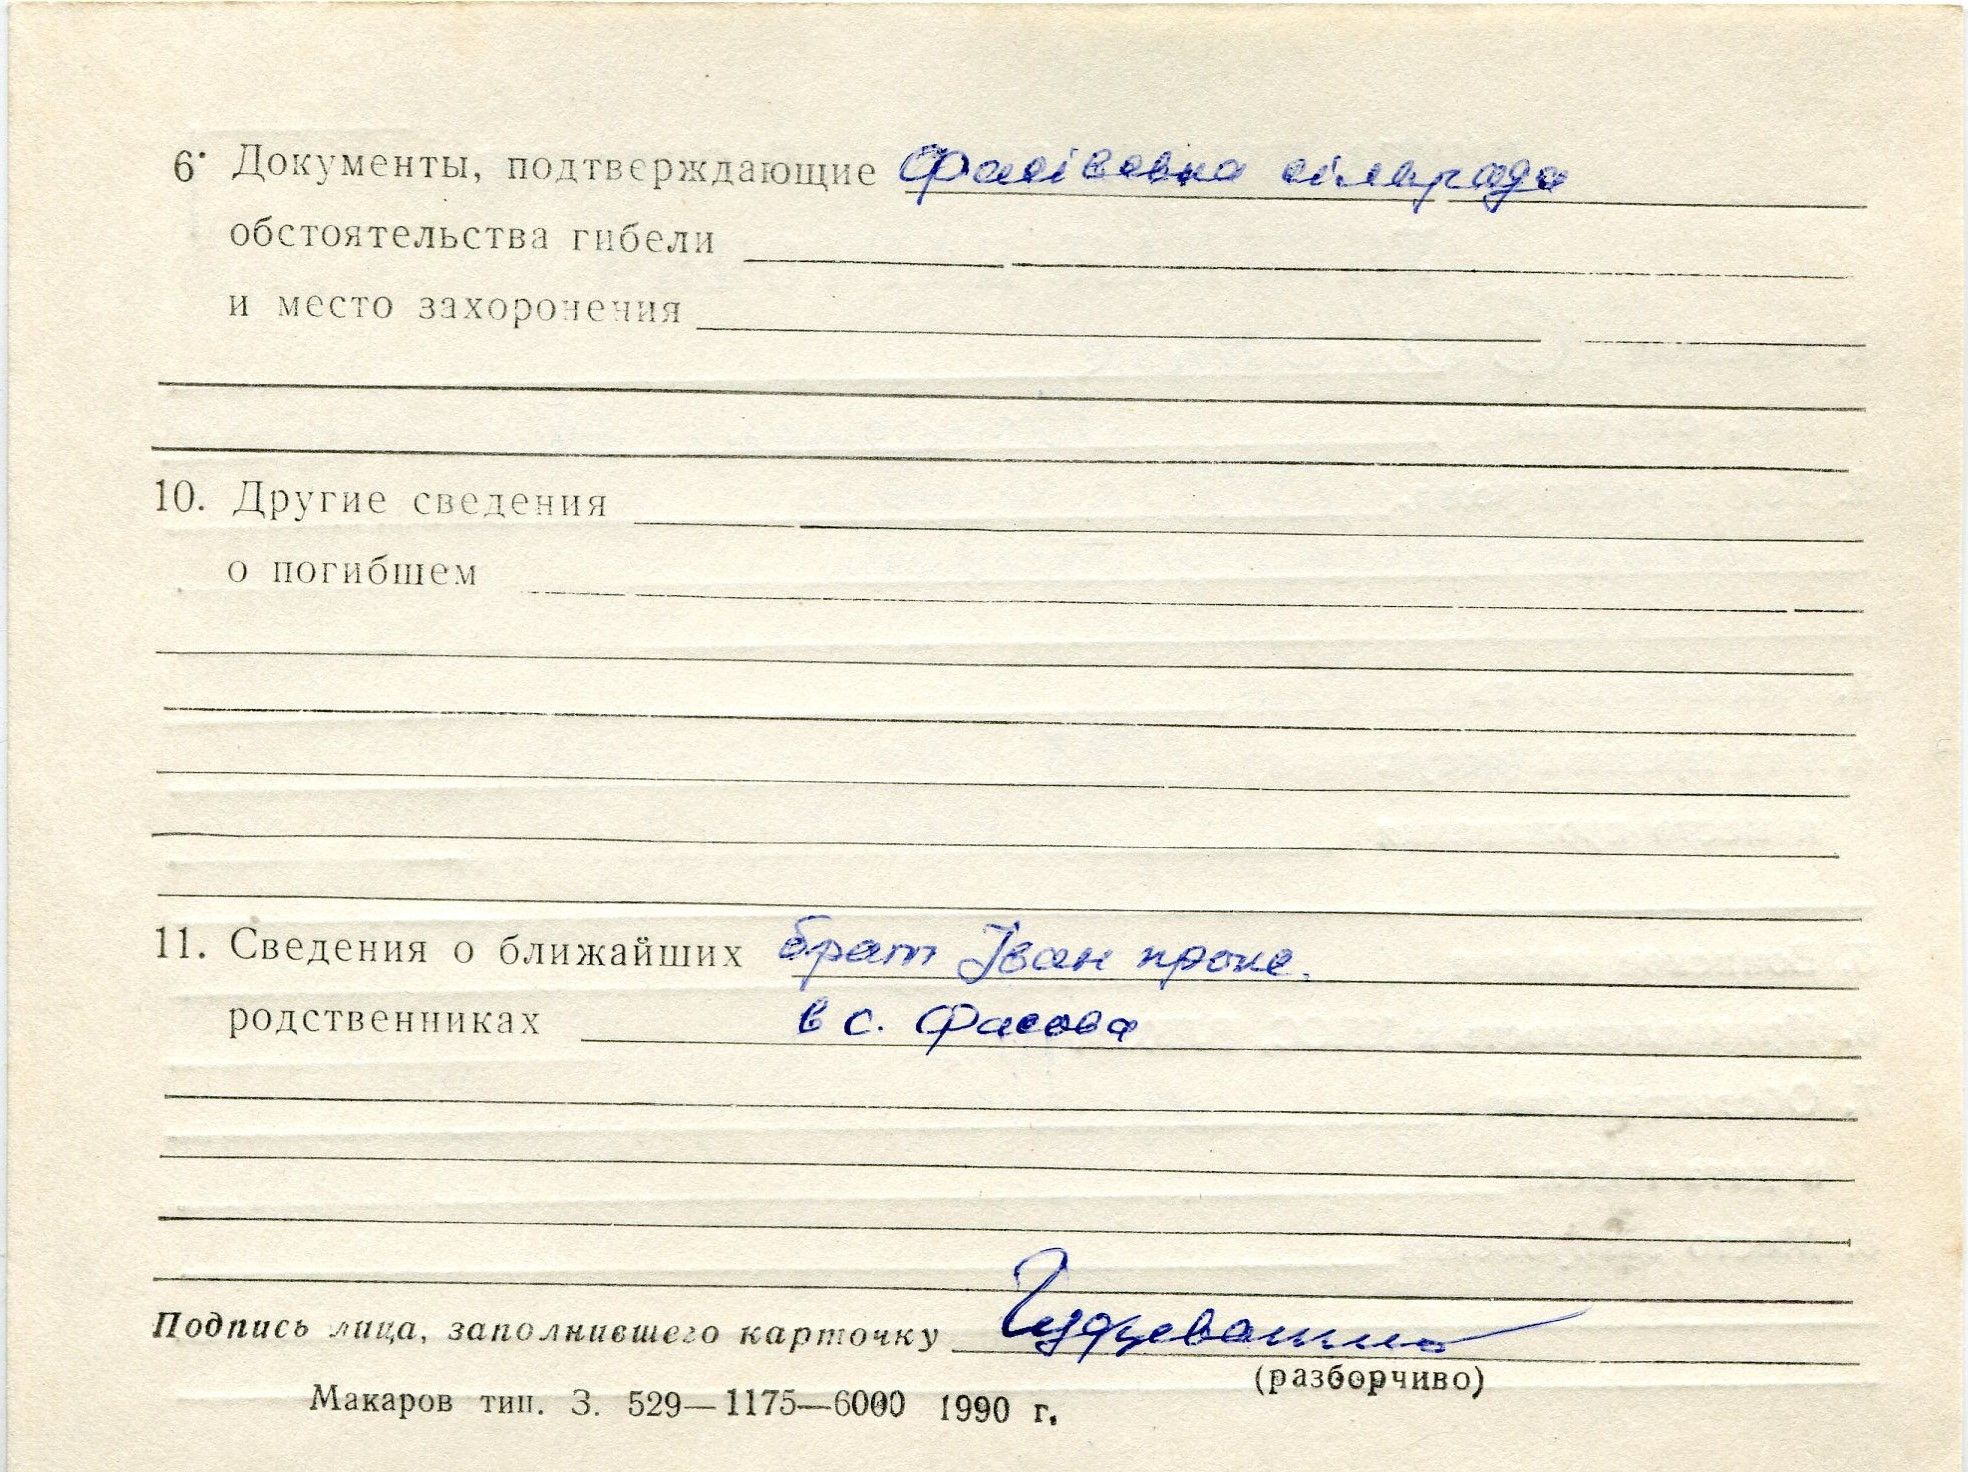 6. Документы, подтверждающие Фасівська сільрада
обстоятельства гибели
и место захоронения
10. Другие сведения
о погибшем
11. Сведения о ближайших брат Іван прож.
родственниках в с. Фасова
Подпись лица, заполнившего карточку
(разборчиво)
Макаров тип. З. 529—1175—6000 1990 г.